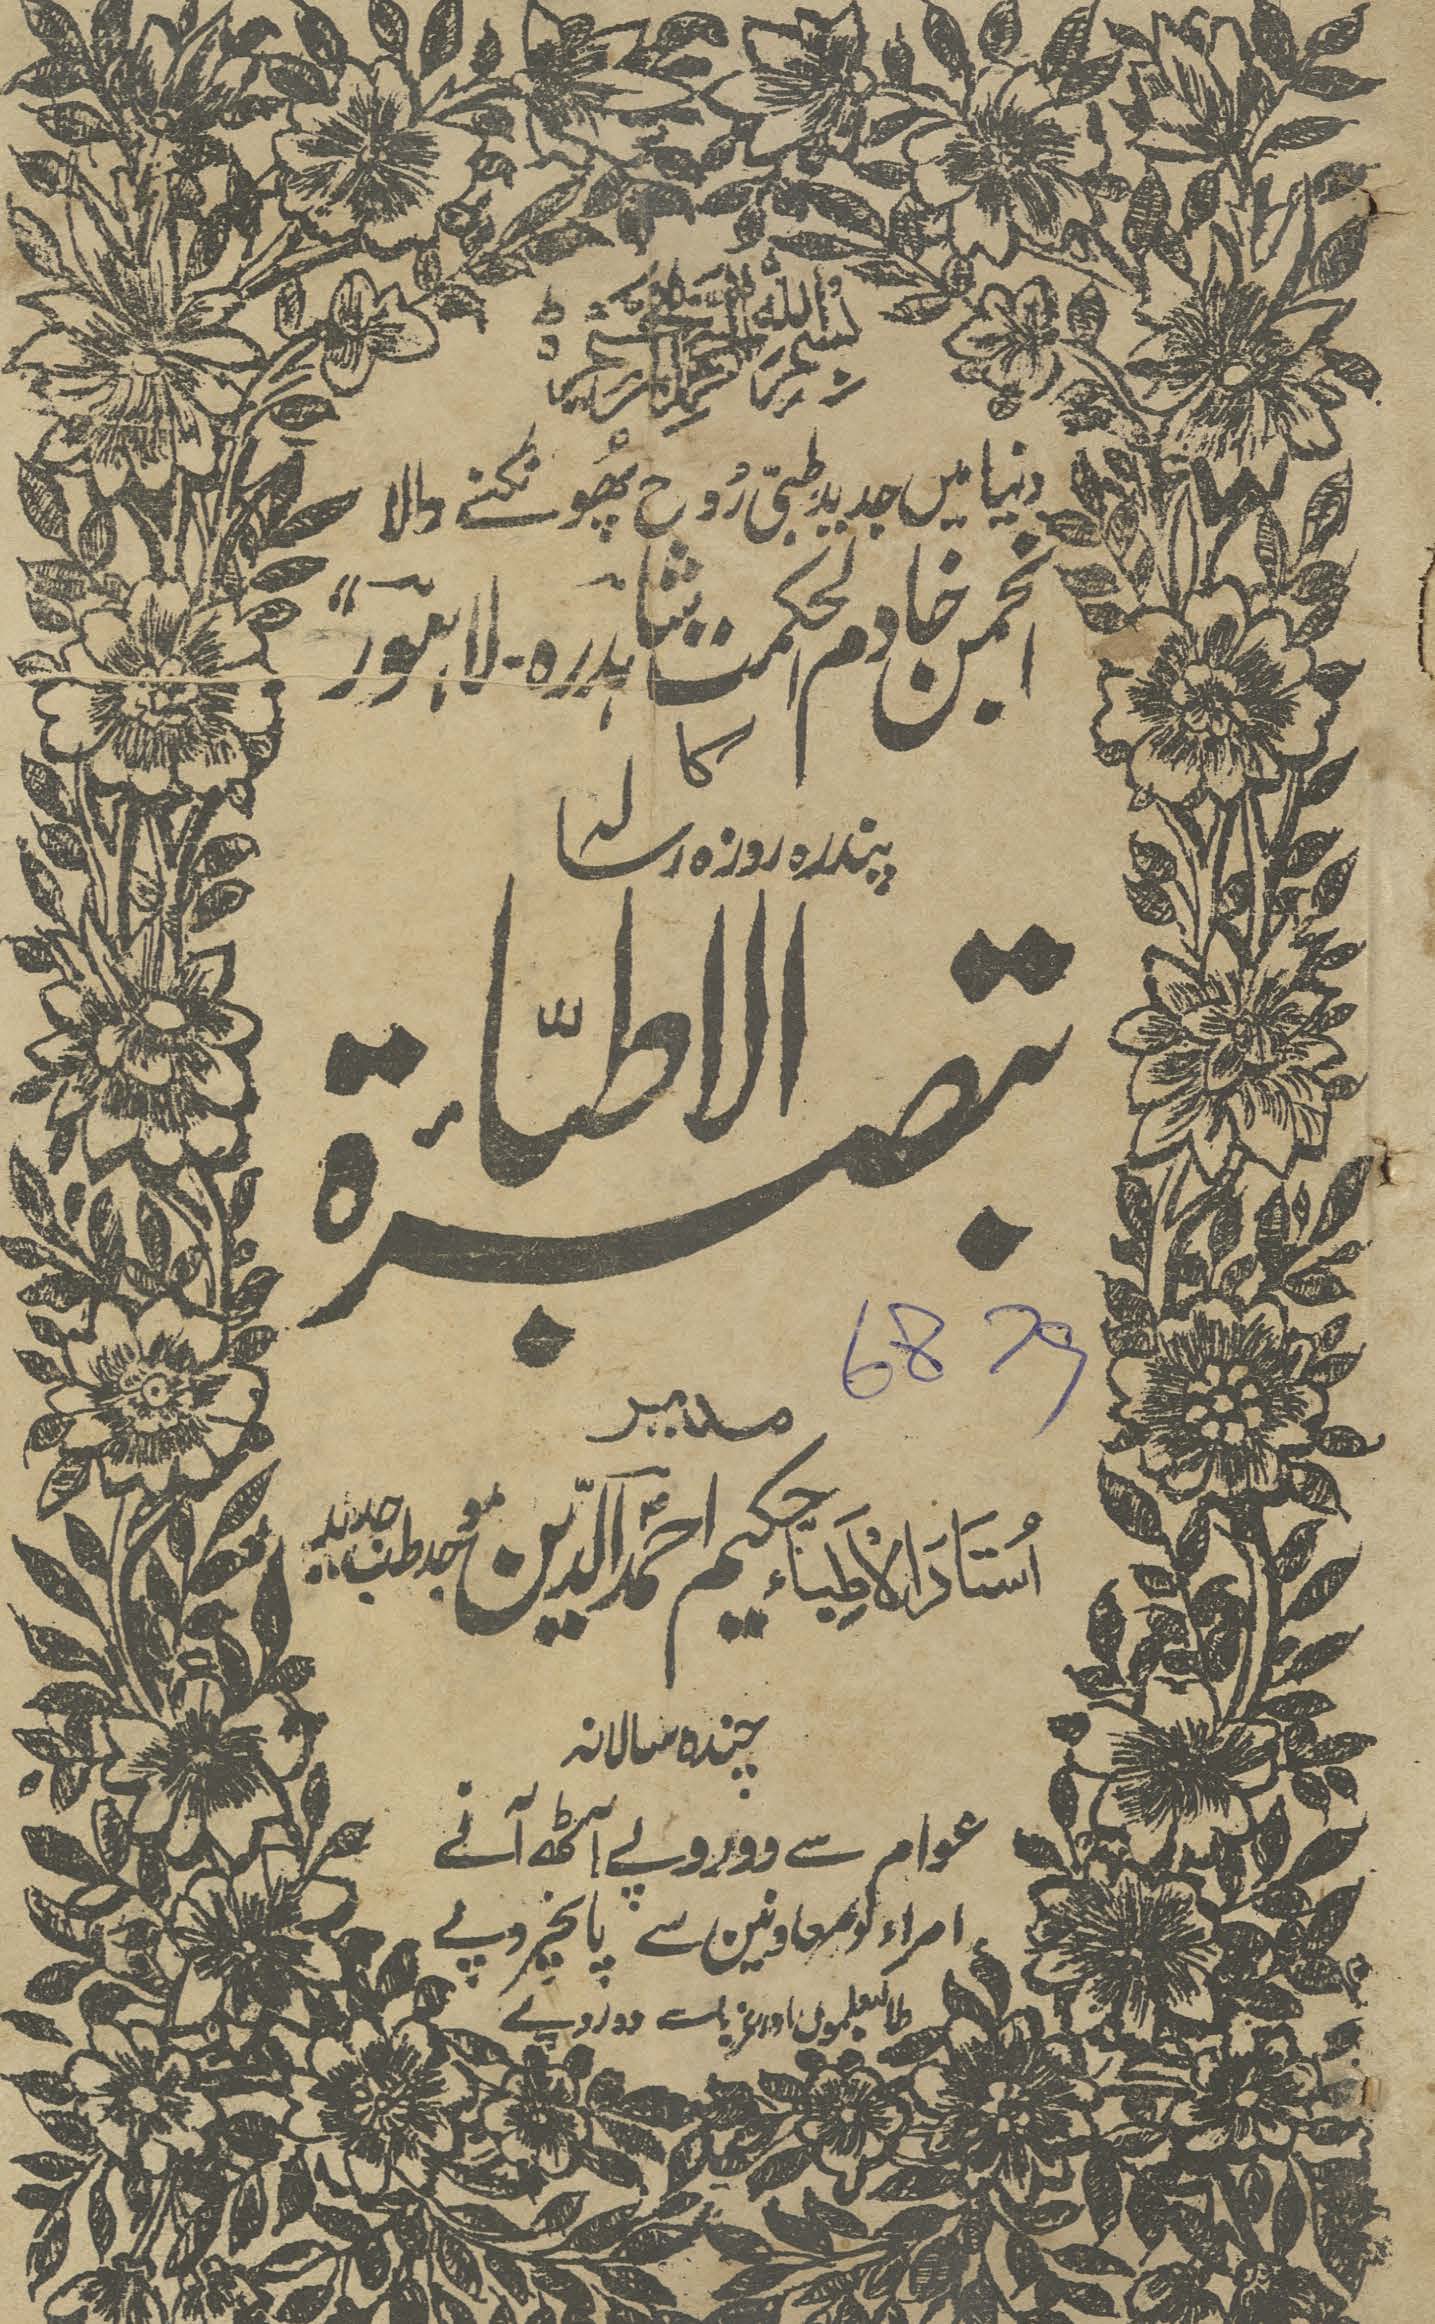 بسم الله الرحمن الرحیم ط
دنیا میں جدید طبّی رُوح پھُونکنے والا
انجمن خادم الحکمت شاہدرہ۔ لاہور"
کا
پندرہ روزہ رسالہ
تبصرۃ الاطبّاء
68 79
مدیر
اُستاذ الاطِبّاء حکیم احمد الدّین موجد طب جدید
چندہ سالانہ
عوام سے دو روپے آٹھ آنے
امراء و معاونین سے پانچ روپے
طالبعلموں اور غربا سے دو روپے